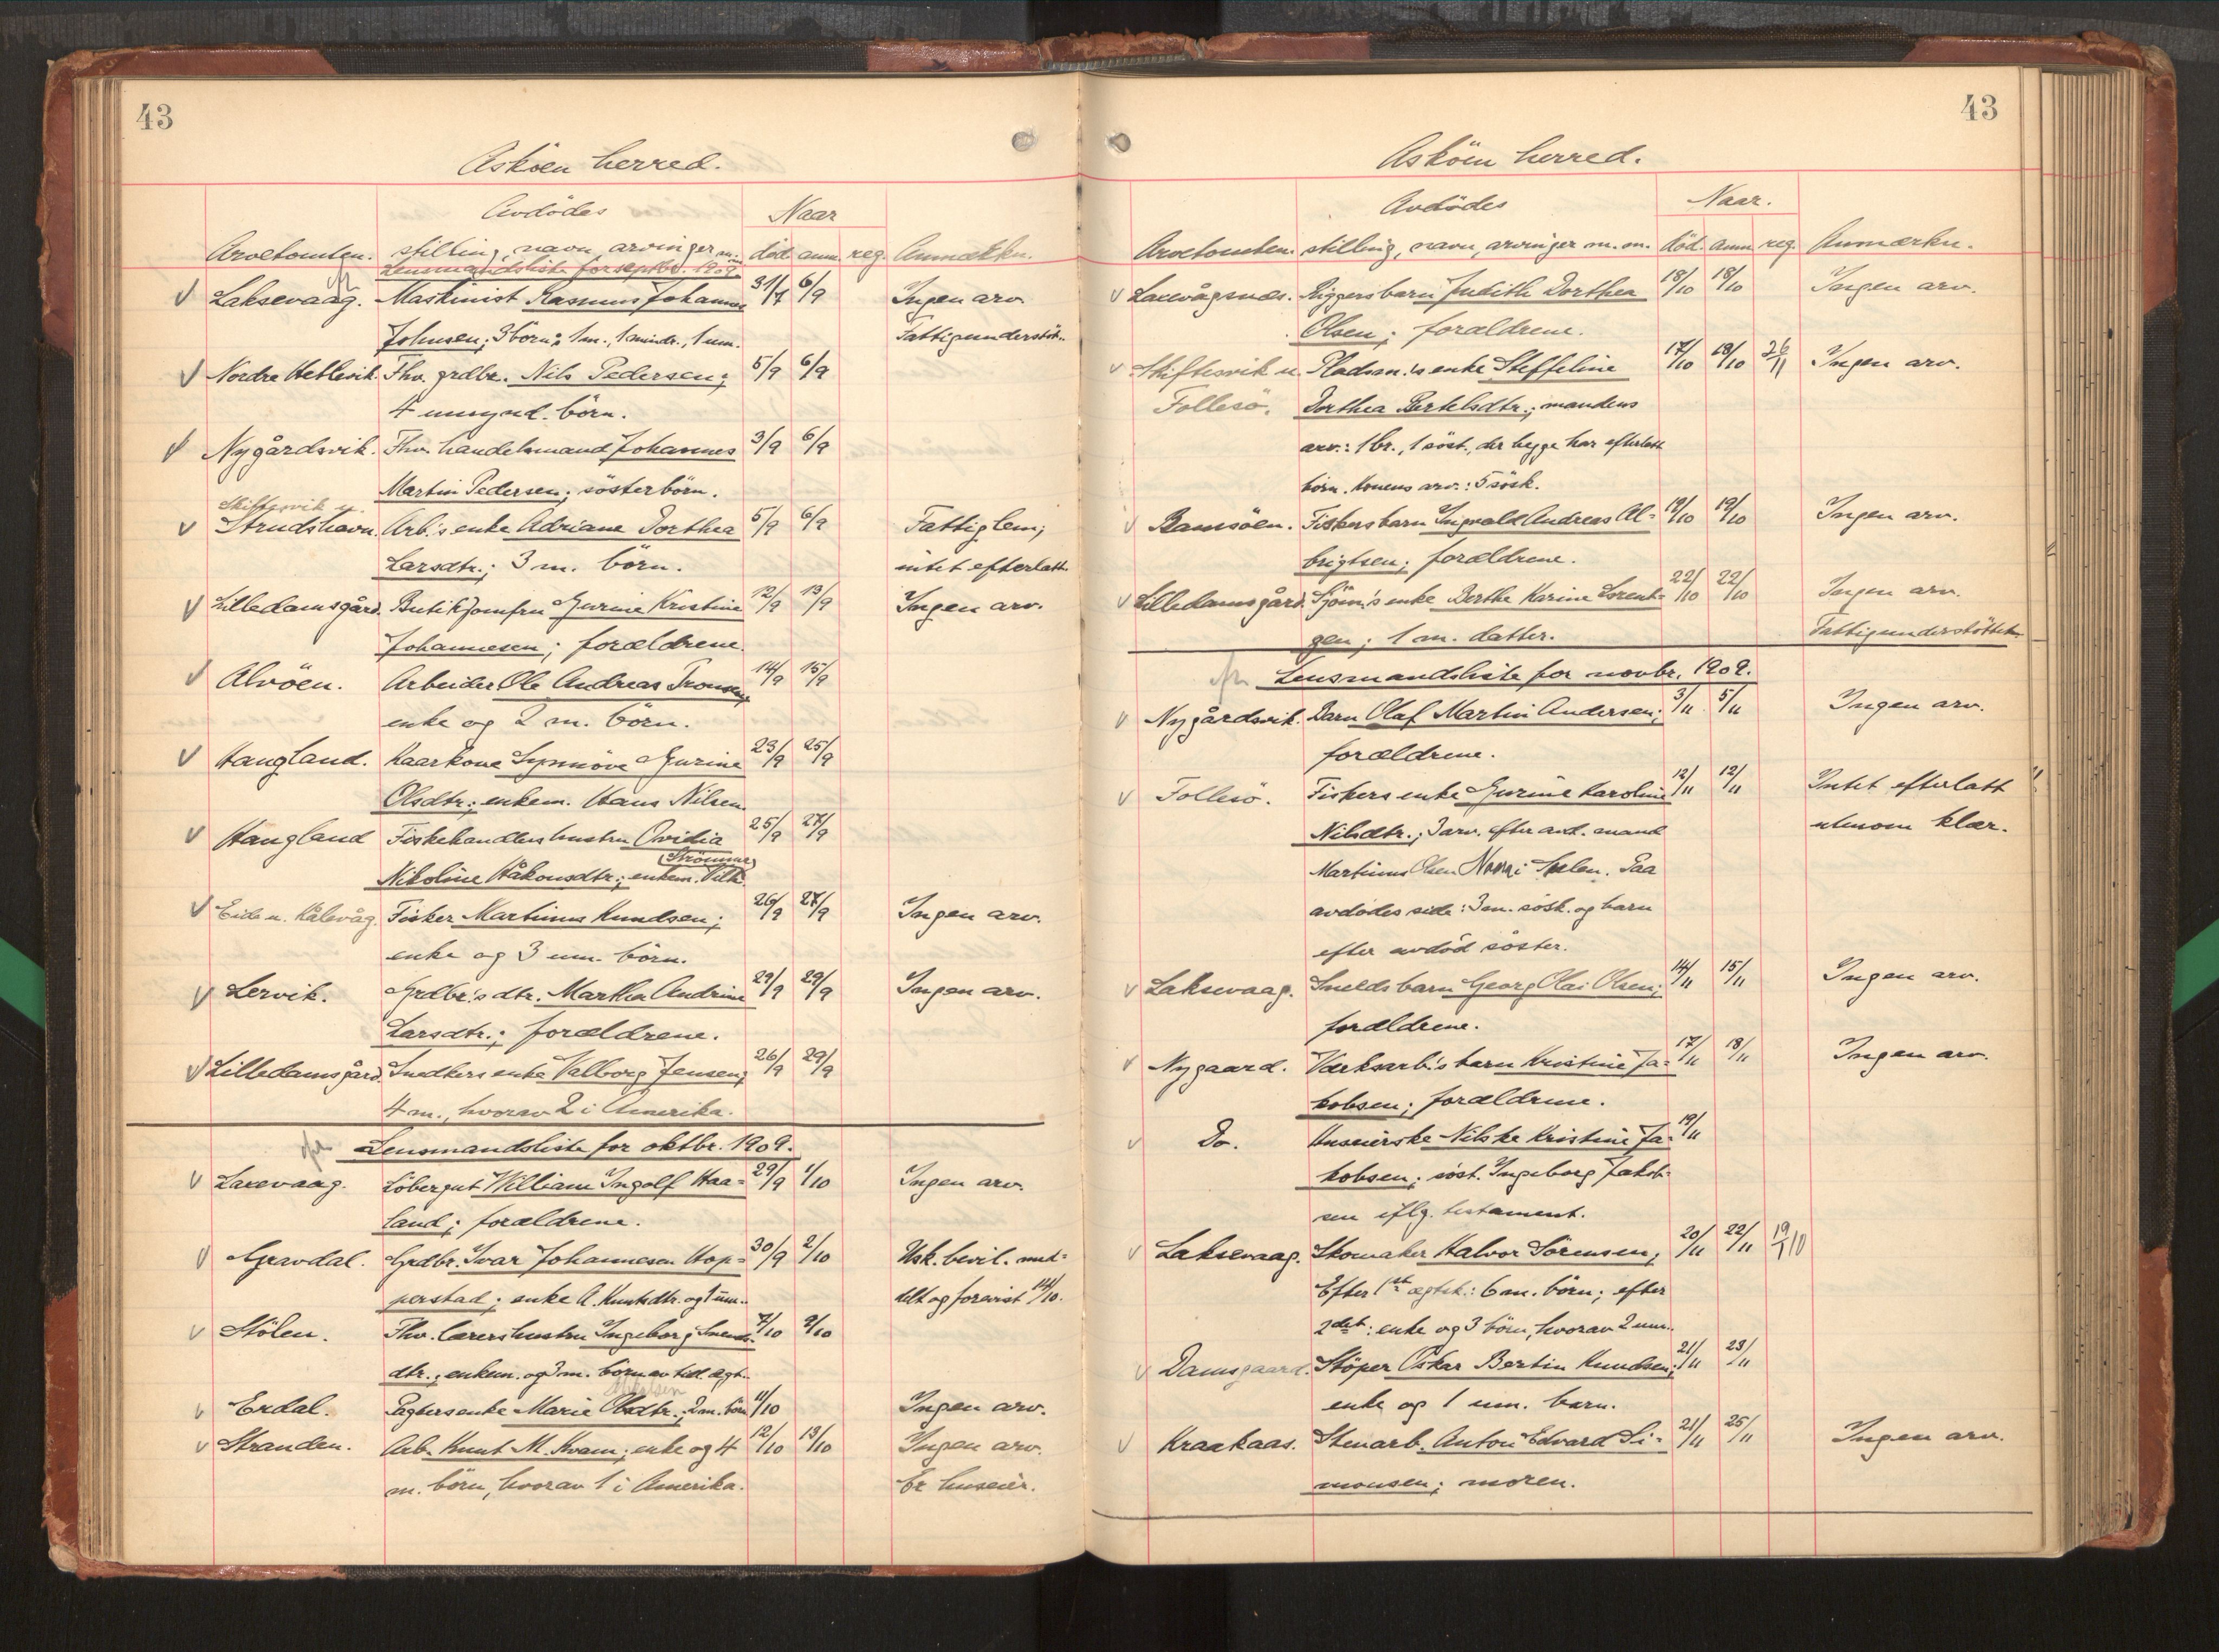 43
Askøen herred.
Avdödes Naar
Arvetomten. stilling, navn, arvinger m.m. död anm. reg. Anmækn.
Lensmandsliste for septbr. 1909.
Laksevaag. Maskinist Rasmus Johannes 31/7 6/9 Ingen arv.
Johnsen; 3 börn: 1 m., 1 mindr., 1 um. Fattigunderstöt.
Nordre Hetlevik. Fhv. grdbr. Nils Pedersen; 5/9 6/9
4 umynd. börn.
Nygårdsvik. Fhv. handelsmand Johannes 3/9 6/9
Martin Pedersen; sösterbörn.
Skiftesvik u.
Strudshavn. Arb.'s enke Adriane Dorthea 5/9 6/9 Fattiglem;
Larsdtr.; 3 m. börn. intet efterlatt.
Lilledamsgård. Butikjomfru Gurine Kristine 12/9 13/9 Ingen arv.
Johannesen; forældrene.
Alvöen. Arbeider Ole Andreas Tronsen; 14/9 15/9
enke og 2 m. börn.
Haugland. Kaarkone Synnöve Gurine 23/9 25/9
Olsdtr.; enkem. Hans Nilsen.
Haugland Fiskehandlers hustru Ovidia 25/9 27/9
(Strömme)
Nikoline Håkonsdtr.; enkem. Vilh.
Eide u. Kålevåg. Fisker Martinus Knudsen; 26/9 27/9 Ingen arv.
enke og 3 um. börn.
Lervik. Grdbr.'s dtr. Martha Andrine 29/9 29/9 Ingen arv.
Larsdtr.; forældrene.
Lilledamsgård. Snedkers enke Valborg Jensen; 26/9 29/9
4 m., hvorav 2 i Amerika.
Lensmandsliste for oktbr. 1909.
Laxevaag. Löbergut William Ingolf Haa= 29/9 1/10 Ingen arv.
land; forældrene.
Gravdal. Grdbr. Ivar Johannesen Hop= 30/9 2/10 Usk. bevil. med=
perstad; enke A. Knutsdtr. og 1 um. delt og forevist 14/10.
Stölen. Fhv. lærers hustru Ingeborg Svends= 7/10 9/10
dtr.; enkem. og 3 m. börn av tidl. ægt.
Mikalsen
Erdal. enke Marie Olsdtr.; 2 m. börn 11/10 Ingen arv.
Stranden. Arb. Knut M. Kvam; enke og 4 12/10 13/10 Ingen arv.
m. börn, hvorav 1 i Amerika. Er huseier.
43
Askøen herred.
Avdödes Naar.
Arvetomten. stilling, navn, arvinger m.m. död. anm. reg. Anmærkn.
Laxevågsnes. Riggers barn Judith Dorthea 18/10 18/10 Ingen arv.
Olsen; forældrene.
Skiftesvik u. Pladsm.'s enke Steffeline 17/10 18/10 26/11 Ingen arv.
Follesö. Dorthea Bertelsdtr.; mandens
arv.: 1 br., 1 söst., der begge har efterlatt
börn. konens arv.: 5 sösk.
Ramsöen. Fiskers barn Ingvald Andreas Al= 19/10 19/10 Ingen arv.
brigtsen; forældrene.
Lilledamsgård. Sjöm.'s enke Berthe Karine Lorent= 22/10 22/10 Ingen arv.
zen; 1 m. datter. Fattigunderstöttet.
Lensmandsliste for novbr. 1909.
Nygårdsvik. Barn Olaf Martin Andersen; 3/11 5/11 Ingen arv.
forældrene.
Follesö. Fiskers enke Gurine Karoline 12/11 12/11 Intet efterlatt
Nilsdtr.; 3 arv. efter avd. mand utenom klær.
Martinus Olsen Paa
avdödes side: 3 m. sösk. og barn
efter avdöd söster.
Laksevaag. Smelds barn Georg Olai Olsen; 14/11 15/11 Ingen arv.
forældrene.
Nygaard. Værksarb.'s barn Kristine Ja= 17/11 18/11 Ingen arv.
kobsen; forældrene.
Do. Huseierske Nilske Kristine Ja= 19/11
kobsen; söst. Ingeborg Jakob=
sen iflg. testament.
Laksevaag. Skomaker Halvor Sörensen; 20/11 22/11 19/1 10
Efter 1ste ægtsk.: 6 m. börn; efter
2det: enke og 3 börn, hvorav 2 um.
Damsgaard. Stöper Oskar Bertin Knudsen; 21/11 23/11
enke og 1 um. barn.
Kraakaas. Stenarb. Anton Edvard Si= 21/11 25/11 Ingen arv.
monsen; moren.